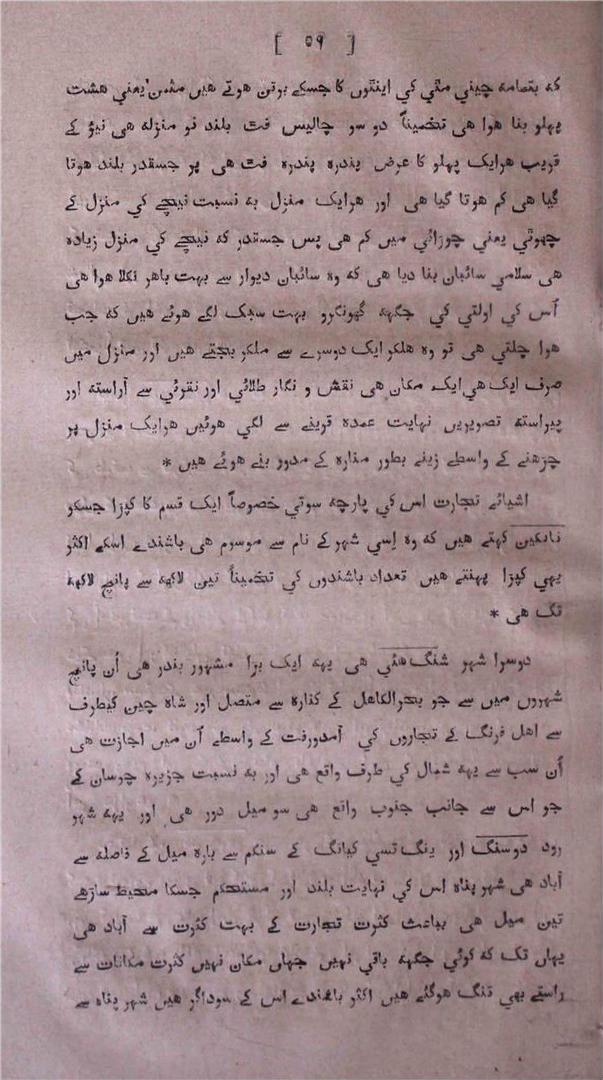 [ ٥٩ ]
که بتصامه چیني مٹي کي اینٹوں کا جسکے برتن هوتے هیں مثمن یعني هشت
پهلو بنا هوا هی تخمیناً دو سو چالیس فٹ بلند نو منزله هی نیؤ کے
قریب هرایک پهلو کا عرض پندره پندره فٹ هی پر جسقدر بلند هوتا
گیا هی کم هوتا گیا هی اور هرایک منزل به نسبت نیچے کي منزل کے
چهوٹي یعني چوڑائي میں کم هی پس جسقدر که نیچے کي منزل زیاده
هی سلامي سائبان بنا دیا هی که وه سائبان دیوار سے بهت باهر نکلا هوا هی
اُس کي اولتي کي جگهه گهونگرو بهت سبک لگے هوئے هیں که جب
هوا چلتي هی تو وه هلکر ایک دوسرے سے ملکر بجتے هیں اور منزل میں
صرف ایک هي ایک مکان هی نقش و نگار طلائي اور نقرئي سے آراسته اور
پیراسته تصویریں نهایت عمده قرینے سے لگي هوئیں هرایک منزل پر
چڑهنے کے واسطے زینے بطور مناره کے مدور بنے هوئے هیں *
اشیائے تجارت اس کي پارچه سوتي خصوصاً ایک قسم کا کپڑا جسکو
نانکین کهتے هیں که وه اِسي شهر کے نام سے موسوم هی باشندے اسکے اکثر
یهي کپڑا پهنتے هیں تعداد باشندوں کي تخمیناً تین لاکهه سے پانچ لاکهه
تک هی *
دوسرا شهر شنگ هئي هی یهه ایک بڑا مشهور بندر هی اُن پانچ
شهروں میں سے جو بحرالکاهل کے کناره سے متصل اور شاه چین کیطرف
سے اهل فرنگ کے تجاروں کي آمدورفت کے واسطے اُن میں اجازت هی
اُن سب سے یهه شمال کي طرف واقع هی اور به نسبت جزیره چوسان کے
جو اس سے جانب جنوب واقع هی سو میل دور هی اور یهه شهر
رود دوسنگ اور ینگ تسي کیانگ کے سنگم سے باره میل کے فاصله سے
آباد هی شهر پناه اس کي نهایت بلند اور مستحکم جسکا محیط ساڑهے
تین میل هی بباعث کثرت تجارت کے بهت کثرت سے آباد هی
یهاں تک که کوئي جگهه باقي نهیں جهاں مکان نهیں کثرت مکانات سے
راستے بهي تنگ هوگئے هیں اکثر باشندے اس کے سوداگر هیں شهر پناه سے